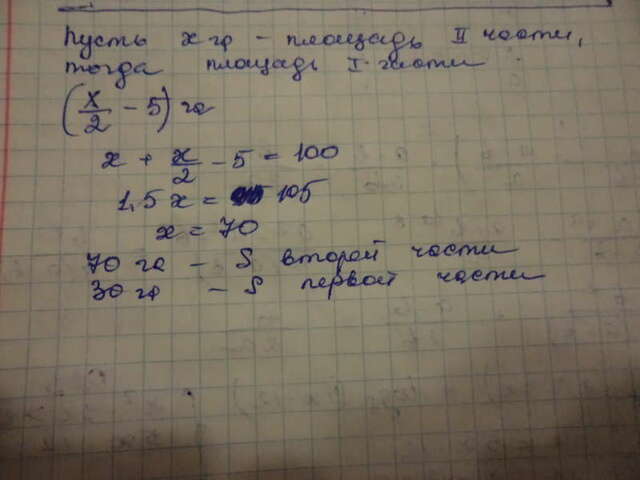 Пусть x га – площадь II части,
тогда площадь I части
(x/2 - 5) га
x + x/2 - 5 = 100
1,5x = 105
x = 70
70 га – S второй части
30 га – S первой части